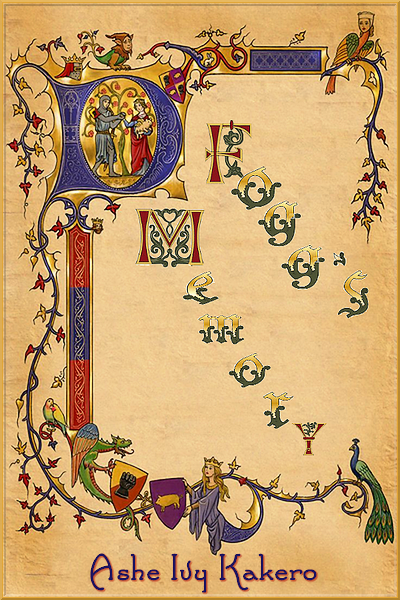 Fogg's
Memory
Ashe Ivy Kakero